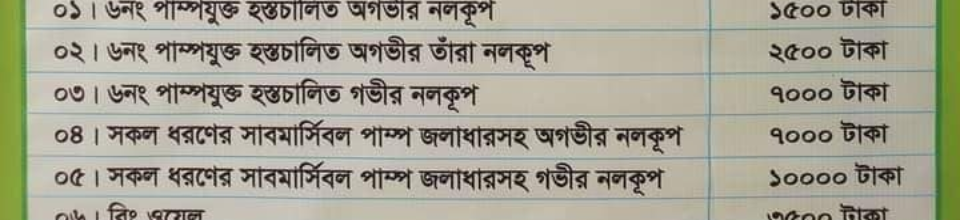 ০১। ৬নং পাম্পযুক্ত হস্তচালিত অগভীর নলকূপ ১৫০০ টাকা
০২। ৬নং পাম্পযুক্ত হস্তচালিত অগভীর তাঁরা নলকূপ ২৫০০ টাকা
০৩। ৬নং পাম্পযুক্ত হস্তচালিত গভীর নলকূপ ৭০০০ টাকা
০৪। সকল ধরণের সাবমার্সিবল পাম্প জলাধারসহ অগভীর নলকূপ ৭০০০ টাকা
০৫। সকল ধরণের সাবমার্সিবল পাম্প জলাধারসহ গভীর নলকূপ ১০০০০ টাকা
০৬। রিং ওয়েল ৩৫০০ টাকা